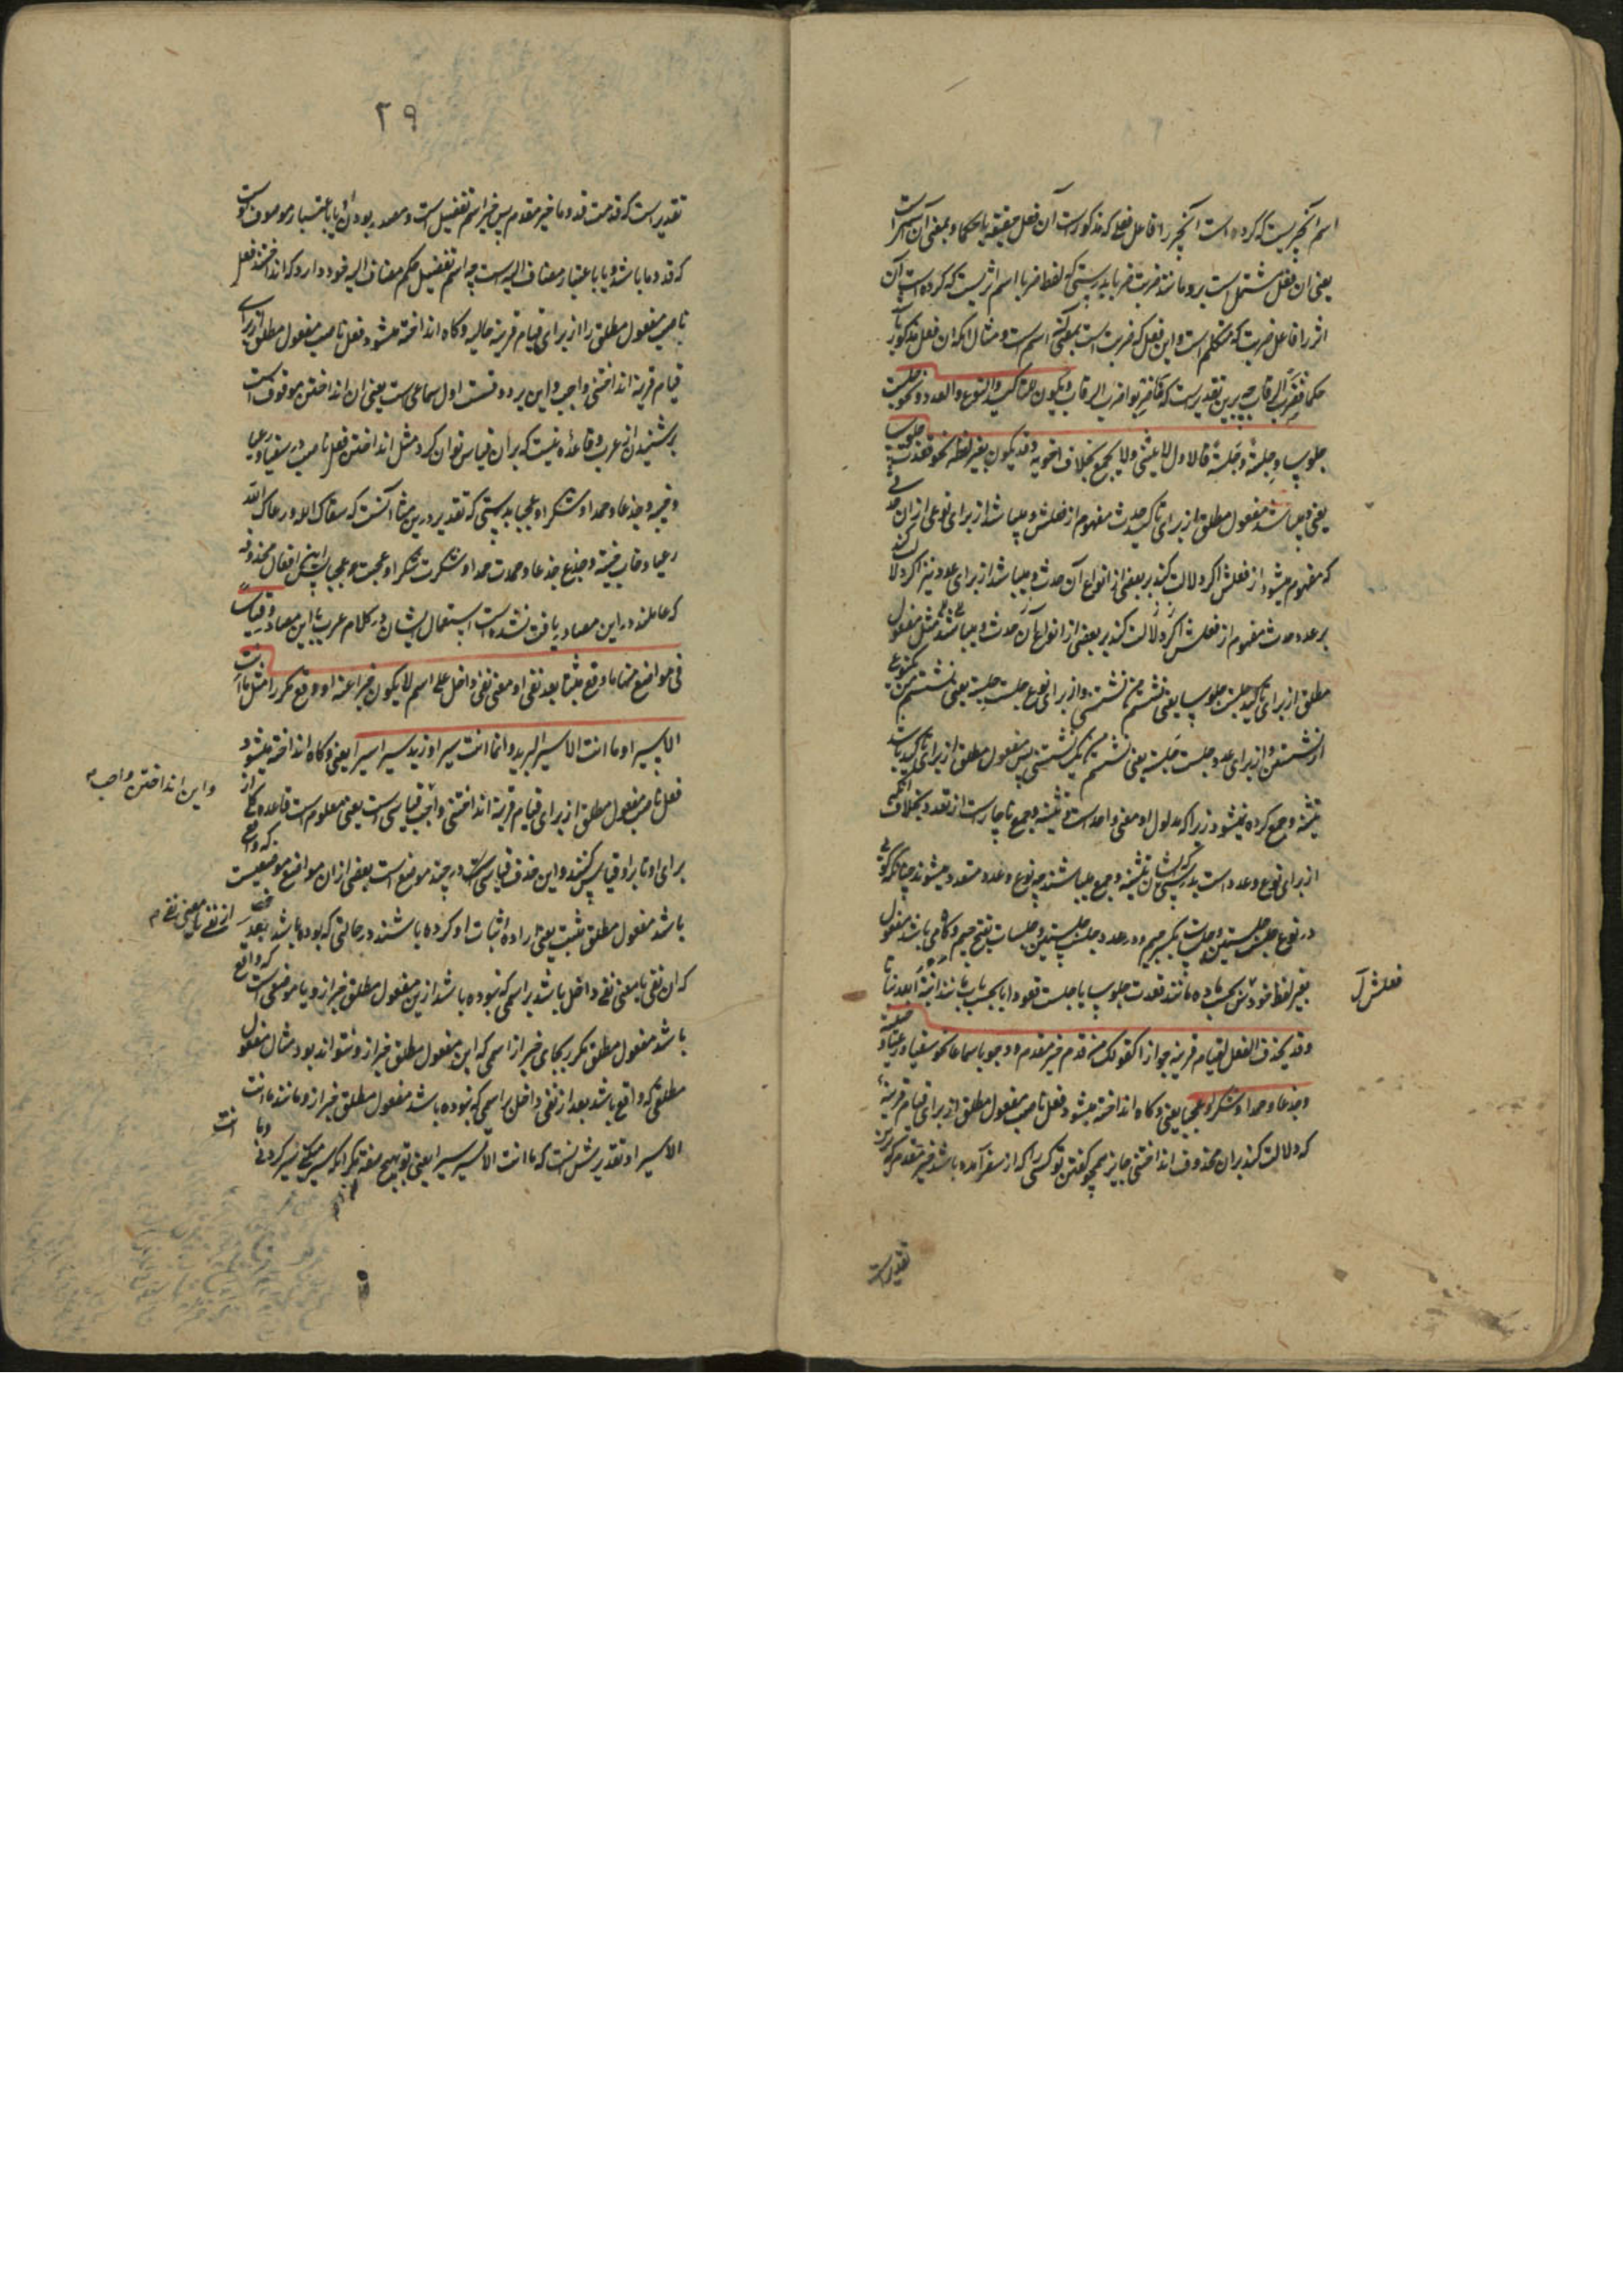 اسم آنچیزیست که کرده است آنچیز را فاعل فعلی که مذکورست آن فعل حقیقة یا حکما و بمعنی آن اسم است
یعنی ان فعل مشتمل است برو مانند ضربت ضربا بدرستی که لفظ ضربا اسم اثریست که کرده است آن
اثر را فاعل ضربت که متکلم است و این فعل که ضربت است بمعنی اسم است و مثال آنکه ان فعل مذکور باشد
حکما فضرب الرقاب چه برین تقدیرست که فاضربوا ضرب الرقاب ویکون للتاکید والنوع والعدد نحو جلست
جلوسا وجلسة وجلسة فالاول لا یثنی ولا یجمع بخلاف اخویه وقد یکون بغیر لفظه نحو قعدت جلوسا
یعنی و میباشد مفعول مطلق از برای تاکید حدث مفهوم از فعلش و میباشد از برای نوعی از ان حدثی
که مفهوم میشود از فعلش اگر دلالت کند بر بعضی از انواع آن حدث و میباشد از برای عدد نیز اگر دلالت کند
بر عدد حدث مفهوم از فعلش اگر دلالت کند بر بعضی از انواع آن حدث و میباشد مثل مفعول
مطلق از برای تاکید جلست جلوسا یعنی نشستم من نشستنی و از برای نوع جلست جلسة یعنی نشستم من بنوعی
از نشستن و از برای عدد جلست جلسة یعنی نشستم من یک نشستنی پس مفعول مطلق از برای تاکید باشد
تثنیه و جمع کرده نمیشود زیرا که مدلول او معنی واحد است و تثنیه و جمع ناچارست از تعدد بخلاف آنکه
از برای نوع و عدد است بدرستی که ایشان تثنیه و جمع میباشند چه نوع و عدد متعدد میشوند چنانکه گویی
در نوع جلست جلستین و جلسات بکسر جیم و در عدد جلست جلستین و جلسات بفتح جیم و گاهی باشد مفعول
بغیر لفظ خودش بحسب ماده مانند قعدت جلوسا یا جلست قعودا یا بحسب باب مانند انبته الله نباتا
وقد یحذف الفعل لقیام قرینة جوازا کقولک لمن قدم خیر مقدم ووجوبا سماعا نحو سقیا ورعیا وخیبة
وجدعا وحمدا وشکرا وعجبا یعنی و گاه انداخته میشود فعل ناصب مفعول مطلق از برای قیام قرینه
که دلالت کند بران محذوف انداختنی جایز همچو گفتن تو کسی را که از سفر آمده باشد خیر مقدم که برین
تقدیرست
فعلش آ
۲۹
تقدیر است که قدمت قدوما خیر مقدم پس خیر اسم تفضیل است و مصدر بودن او یا باعتبار موصوف اوست
که قدوما باشد و یا باعتبار مضاف الیه است چه اسم تفضیل حکم مضاف الیه خود دارد که انداختند فعل
ناصب مفعول مطلق را از برای قیام قرینه حالیه و گاه انداخته میشود فعل ناصب مفعول مطلق از برای
قیام قرینه انداختنی واجب و این بر دو قسمت اول سماعی ست یعنی ان انداختن موقوف است
بر شنیدن از عرب و قاعده نیست که بران قیاس توان کرد مثل انداختن فعل ناصب در سقیا و رعیا
و خیبة و جدعا و حمدا و شکرا و عجبا بدرستی که تقدیر درین مثالها آنست که سقاک الله و رعاک الله
رعیا و خاب خیبة و جدع جدعا و حمدت حمدا و شکرت شکرا و عجبت عجبا پس این افعال محذوفه
که عاملند در این مصادر یافت نشده است استعمال ایشان در کلام عرب با این مصادر وقیاسا
فی مواضع منها ما وقع مثبتا بعد نفی او معنی نفی داخل علی اسم لا یکون خبرا عنه او وقع مکررا مثل ما انت
الا سیرا وما انت الا سیر البرید وانما انت سیرا وزید سیرا سیرا یعنی و گاه انداخته میشود
فعل ناصب مفعول مطلق از برای قیام قرینه انداختنی واجب قیاسی است یعنی معلوم است قاعده کلی از
برای او تا برو قیاس کنند و این حذف قیاسی در چند موضع است بعضی از ان مواضع موضعیست که واقع
باشد مفعول مطلق مثبت یعنی اراده اثبات او کرده باشند در حالتی که بوده باشد بعد
که ان نفی یا معنی نفی داخل باشد بر اسمی که نبوده باشد ازین مفعول مطلق خبر ازو یا موضعی است که واقع
باشد مفعول مطلق مکرر بجای خبر از اسمی که این مفعول مطلق خبر ازو نتواند بود مثال مفعول
مطلقی که واقع باشد بعد از نفی داخل بر اسمی که نبوده باشد مفعول مطلق خبر ازو مانند ما انت
الا سیرا و تقدیرش آنست که ما انت الا تسیر سیرا یعنی تو بهیچ صفة مگر آنکه سیر میکنی سیر کردنی وما انت
و این انداختن واجب
از نفی یا معنی نفی